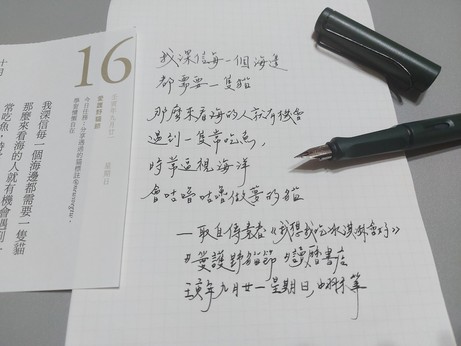 16
愛護野貓節
星期日
我深信每一個海邊都需要一隻貓
那麼來看海的人就有機會遇到一
常吃魚，時
我深信每一個海邊
都需要一隻貓
那麼來看海的人就有機會
遇到一隻常吃魚，
時常巡視海洋
會咕嚕咕嚕做夢的貓
—取自傅素春《我想我吃冰淇淋會好》
#愛護野貓節 #讀曆書店
壬寅年九月廿一 星期日